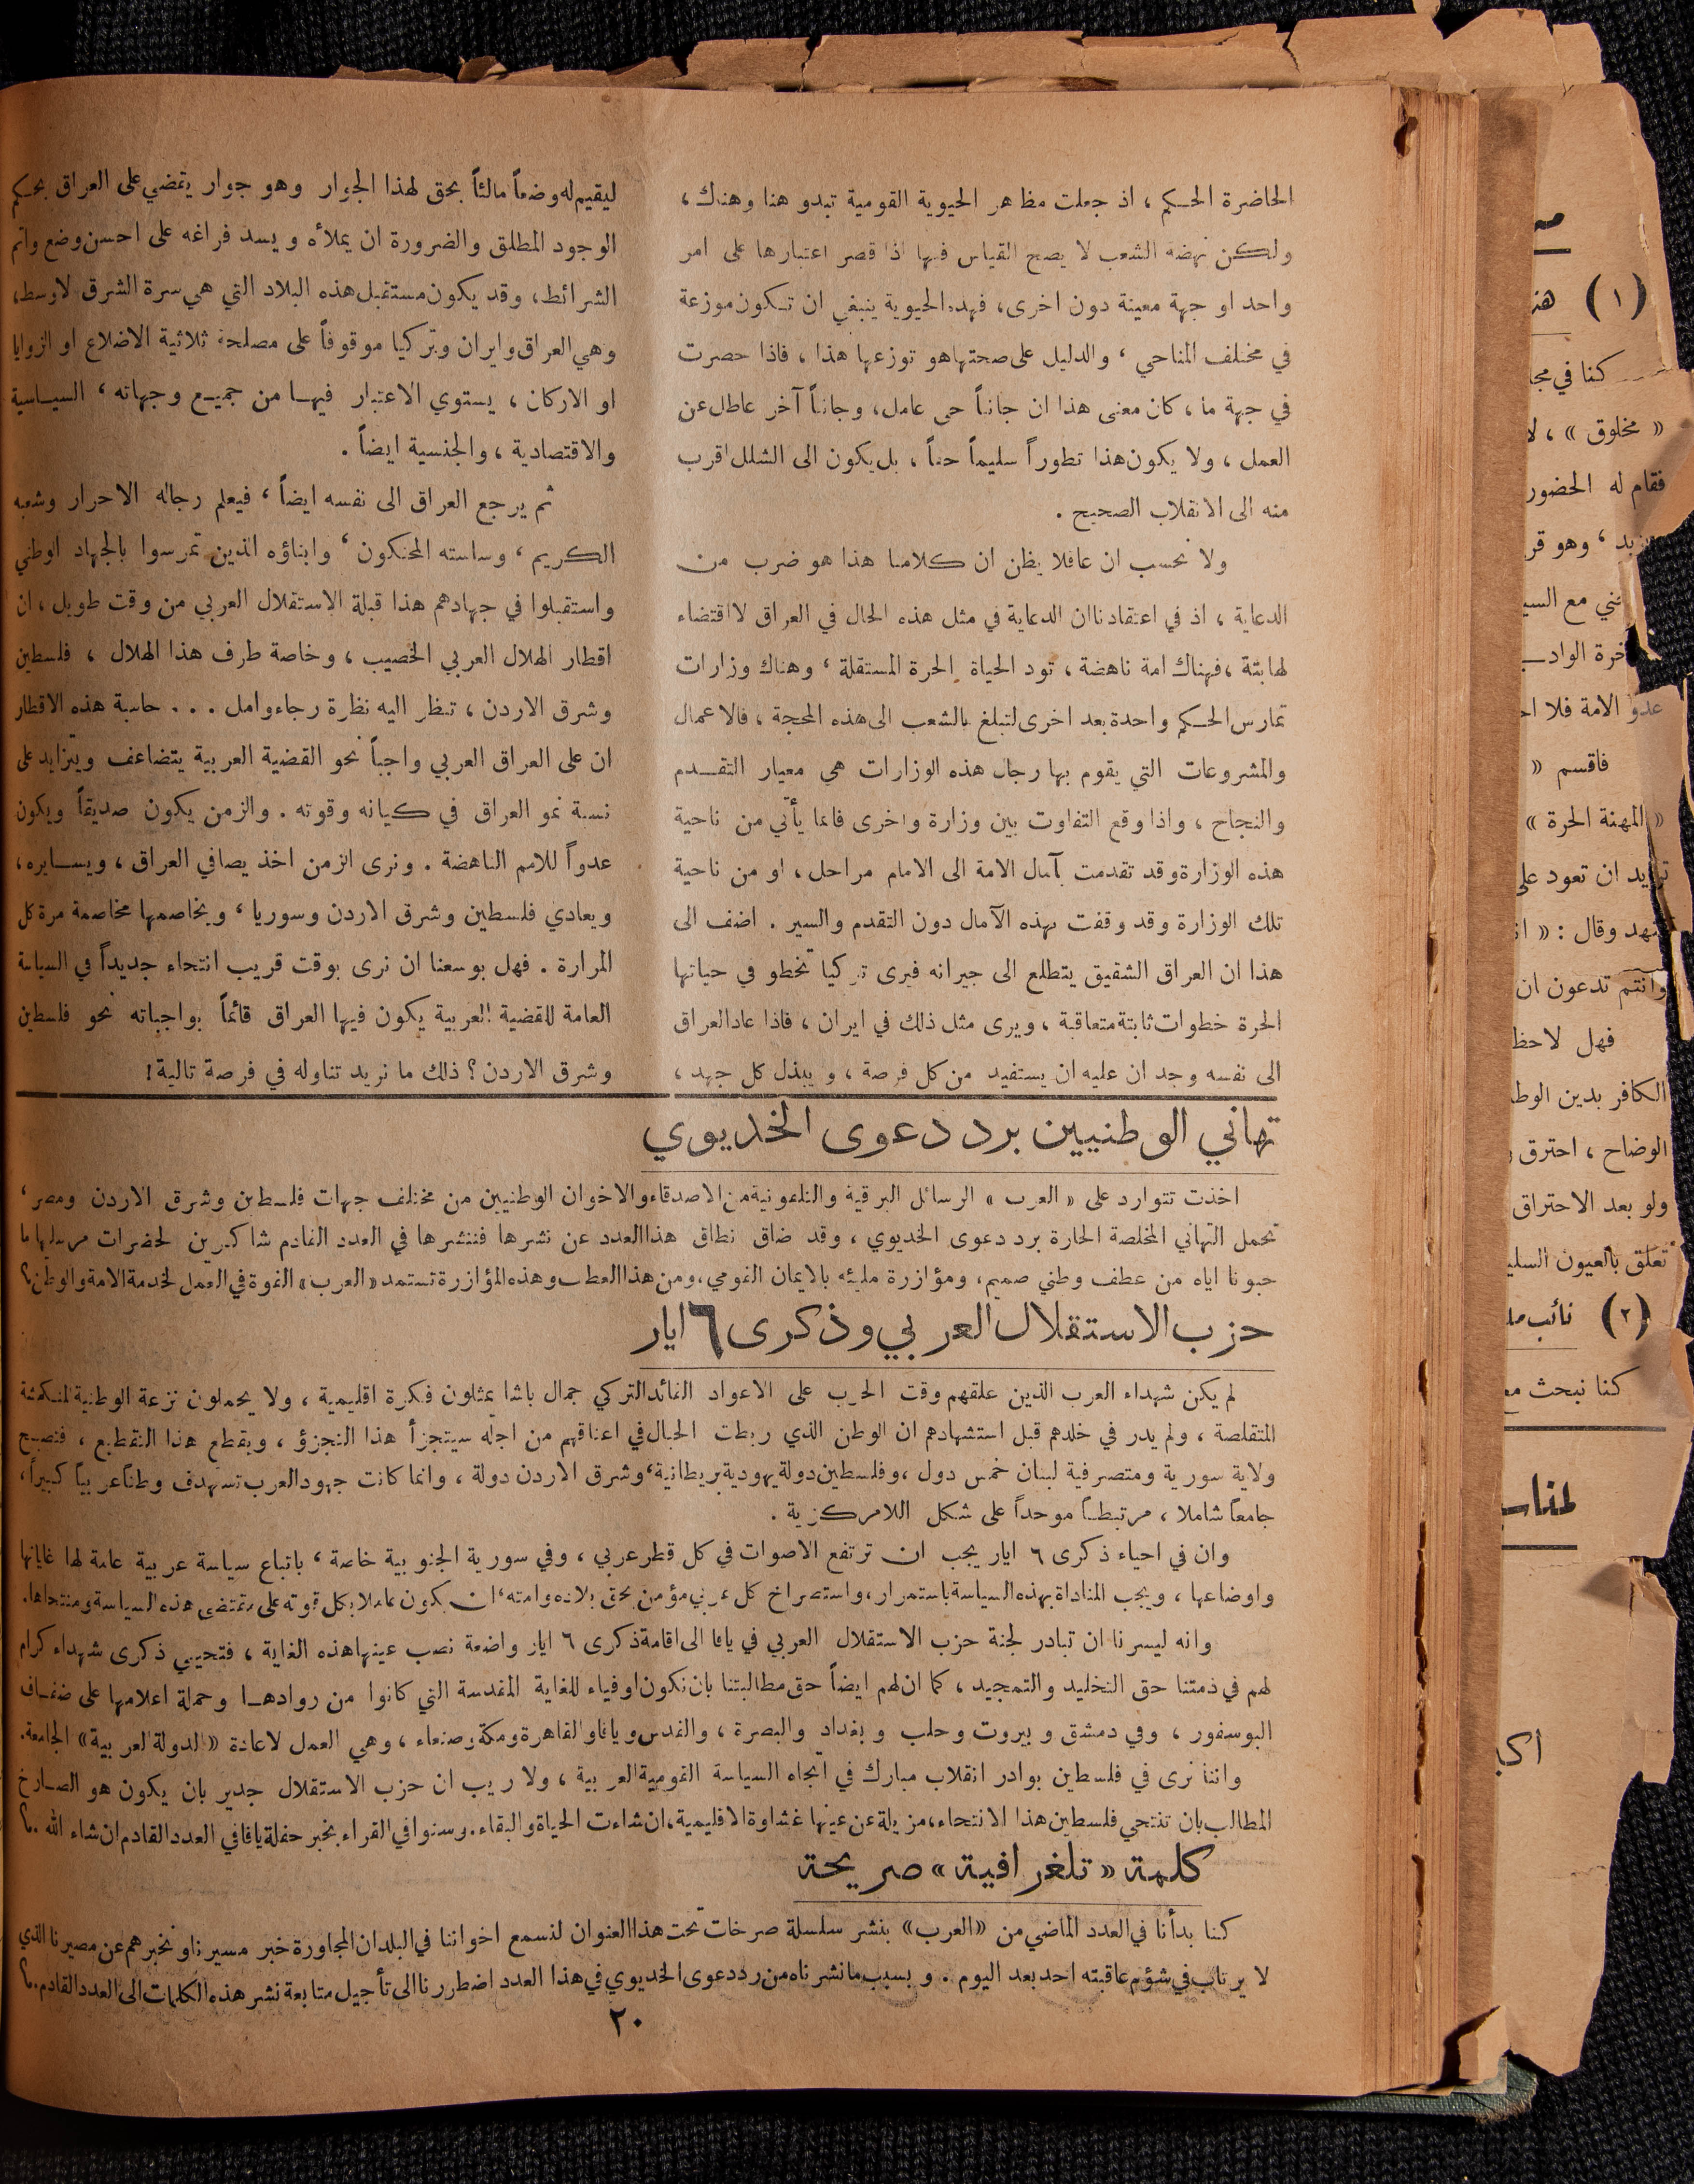 الحاضرة الحكم ، اذ جعلت مظاهر الحيوية القومية تبدو هنا وهناك ،
ولكن نهضة الشعب لا يصح القياس فيها اذا قصر اعتبارها على امر
واحد او جهة معينة دون اخرى، فهذه الحيوية ينبغي ان تكون موزعة
في مختلف المناحي ، والدليل على صحتها هو توزعها هذا ، فاذا حصرت
في جهة ما ، كان معنى هذا ان جانباً حي عامل، وجانباً آخر عاطل عن
العمل ، ولا يكون هذا تطوراً سليماً حقاً ، بل يكون الى الشلل اقرب
منه الى الانقلاب الصحيح .
ولا نحسب ان عاقلا يظن ان كلامنا هذا هو ضرب من
الدعاية ، اذ في اعتقادنا ان الدعاية في مثل هذه الحال في العراق لا اقتضاء
لها بتة ، فهناك امة ناهضة ، تود الحياة الحرة المستقلة ، وهناك وزارات
تمارس الحكم واحدة بعد اخرى لتبلغ بالشعب الى هذه المحجة ، فالاعمال
والمشروعات التي يقوم بها رجال هذه الوزارات هي معيار التقدم
والنجاح ، واذا وقع التفاوت بين وزارة واخرى فانما يأتي من ناحية
هذه الوزارة وقد تقدمت بآمال الامة الى الامام مراحل ، او من ناحية
تلك الوزارة وقد وقفت بهذه الآمال دون التقدم والسير . اضف الى
هذا ان العراق الشقيق يتطلع الى جيرانه فيرى تركيا تخطو في حياتها
الحرة خطوات ثابتة متعاقبة ، ويرى مثل ذلك في ايران ، فاذا عاد العراق
الى نفسه وجد ان عليه ان يستفيد من كل فرصة ، و يبذل كل جهد ،
ليقيم له وضعاً مالئاً بحق لهذا الجوار وهو جوار يقضي على العراق بحكم
الوجود المطلق والضرورة ان يملأه و يسد فراغه على احسن وضع واتم
الشرائط، وقد يكون مستقبل هذه البلاد التي هي سرة الشرق لاوسط،
وهي العراق وايران وتركيا موقوفاً على مصلحة ثلاثية الاضلاع او الزوايا
او الاركان ، يستوي الاعتبار فيها من جميع وجهاته ، السياسية
والاقتصادية ، والجنسية ايضاً .
ثم يرجع العراق الى نفسه ايضاً ، فيعلم رجاله الاحرار وشعبه
الكريم ، وساسته المحنكون ، وابناؤه الذين تمرسوا بالجهاد الوطني
واستقبلوا في جهادهم هذا قبلة الاستقلال العربي من وقت طويل ، ان
اقطار الهلال العربي الخصيب ، وخاصة طرف هذا الهلال ، فلسطين
وشرق الاردن ، تنظر اليه نظرة رجاء وامل . . . حاسبة هذه الاقطار
ان على العراق العربي واجباً نحو القضية العربية يتضاعف ويتزايد على
نسبة نمو العراق في كيانه وقوته . والزمن يكون صديقاً ويكون
عدواً للامم الناهضة . ونرى الزمن اخذ يصافي العراق ، ويسايره ،
ويعادي فلسطين وشرق الاردن وسوريا ، ويخاصمها مخاصمة مرة كل
المرارة . فهل بوسعنا ان نرى بوقت قريب انتحاء جديداً في السياسة
العامة للقضية العربية يكون فيها العراق قائماً بواجباته نحو فلسطين
وشرق الاردن ؟ ذلك ما نريد تناوله في فرصة تالية !
تهاني الوطنيين برد دعوى الخديوي
اخذت تتوارد على « العرب » الرسائل البرقية والتلفونية من الاصدقاء والاخوان الوطنيين من مختلف جهات فلسطين وشرق الاردن ومصر ،
تحمل التهاني المخلصة الحارة برد دعوى الخديوي ، وقد ضاق نطاق هذا العدد عن نشرها فننشرها في العدد القادم شاكرين لحضرات مرسليها ما
حبونا اياه من عطف وطني صميم، ومؤازرة مليئه بالايمان القومي، ومن هذا العطف وهذه المؤازرة تستمد «العرب» القوة في العمل لخدمة الامة والوطن ؟
حزب الاستقلال العربي وذكرى ٦ ايار
لم يكن شهداء العرب الذين علقهم وقت الحرب على الاعواد القائد التركي جمال باشا يمثلون فكرة اقليمية ، ولا يحملون نزعة الوطنية المنكمشة
المتقلصة ، ولم يدر في خلدهم قبل استشهادهم ان الوطن الذي ربطت الحبال في اعناقهم من اجله سيتجزأ هذا التجزؤ ، ويقطع هذا التقطيع ، فتصبح
ولاية سورية ومتصرفية لبنان خمس دول ، وفلسطين دولة يهودية بريطانية ، وشرق الاردن دولة ، وانما كانت جهود العرب تستهدف وطناً عربياً كبيراً،
جامعاً شاملا ، مرتبطاً موحداً على شكل اللامركزية .
وان في احياء ذكرى ٦ ايار يجب ان ترتفع الاصوات في كل قطر عربي ، وفي سورية الجنوبية خاصة ، باتباع سياسة عربية عامة لها غاياتها
واوضاعها ، ويجب المناداة بهذه السياسة باستمرار، واستصراخ كل عربي مؤمن بحق بلاده وامته ، ان يكون عاملا بكل قوته على مقتضى هذه السياسة ومنتحاها.
وانه ليسرنا ان تبادر لجنة حزب الاستقلال العربي في يافا الى اقامة ذكرى ٦ ايار واضعة نصب عينها هذه الغاية ، فتحيي ذكرى شهداء كرام
لهم في ذمتنا حق التخليد والتمجيد ، كما ان لهم ايضاً حق مطالبتنا بان نكون اوفياء للغاية المقدسة التي كانوا من روادها وحملة اعلامها على ضفاف
البوسفور ، وفي دمشق و بيروت وحلب و بغداد والبصرة ، والقدس ويافا والقاهرة ومكة وصنعاء ، وهي العمل لاعادة «الدولة العربية» الجامعة.
واننا نرى في فلسطين بوادر انقلاب مبارك في اتجاه السياسة القومية العربية ، ولا ريب ان حزب الاستقلال جدير بان يكون هو الصارخ
المطالب بان تنتحي فلسطين هذا الانتحاء، مزيلة عن عينها غشاوة الاقليمية، ان شاءت الحياة والبقاء. وسنوافي القراء بخبر حفلة يافا في العدد القادم ان شاء الله .؟
كلمة « تلغرافية » صريحة
كنا بدأنا في العدد الماضي من «العرب» بنشر سلسلة صرخات تحت هذا العنوان لنسمع اخواننا في البلدان المجاورة خبر مسيرنا او نخبرهم عن مصيرنا الذي
لا يرتاب في شؤم عاقبته احد بعد اليوم . و بسبب ما نشرناه من رد دعوى الخديوي في هذا العدد اضطررنا الى تأجيل متابعة نشر هذه الكلمات الى العدد القادم.؟
٢٠
(١) هذ
كنا في مجا
« مخلوق » ، لا
فقام له الحضور
، وهو قر
مع السي
عدو الامة فلا اح
فاقسم «
« المهنة الحرة »
تريد ان تعود على
وقال : « ان
وانتم تدعون ان
فهل لاحظ
الكافر بدين الوط
الوضاح ، احترق
ولو بعد الاحتراق
تعلق بالعيون السلي
(٢) نائب
كنا نبحث مع
لمناس
اكبر